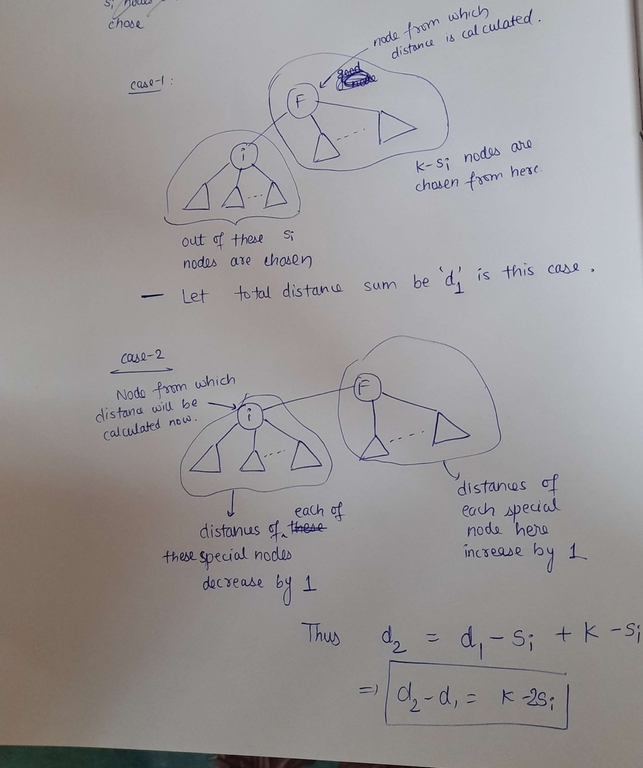 si nodes
chose
node from which
distance is calculated.
case-1 :
good
node
F
i
k-si nodes are
chosen from here.
out of these si
nodes are chosen
— Let total distance sum be 'd1' is this case.
case-2
Node from which
distance will be
calculated now.
F
i
distances of each of these
these special nodes
decrease by 1
distances of
each special
node here
increase by 1
Thus d2 = d1 - si + k - si
=> d2 - d1 = k - 2si